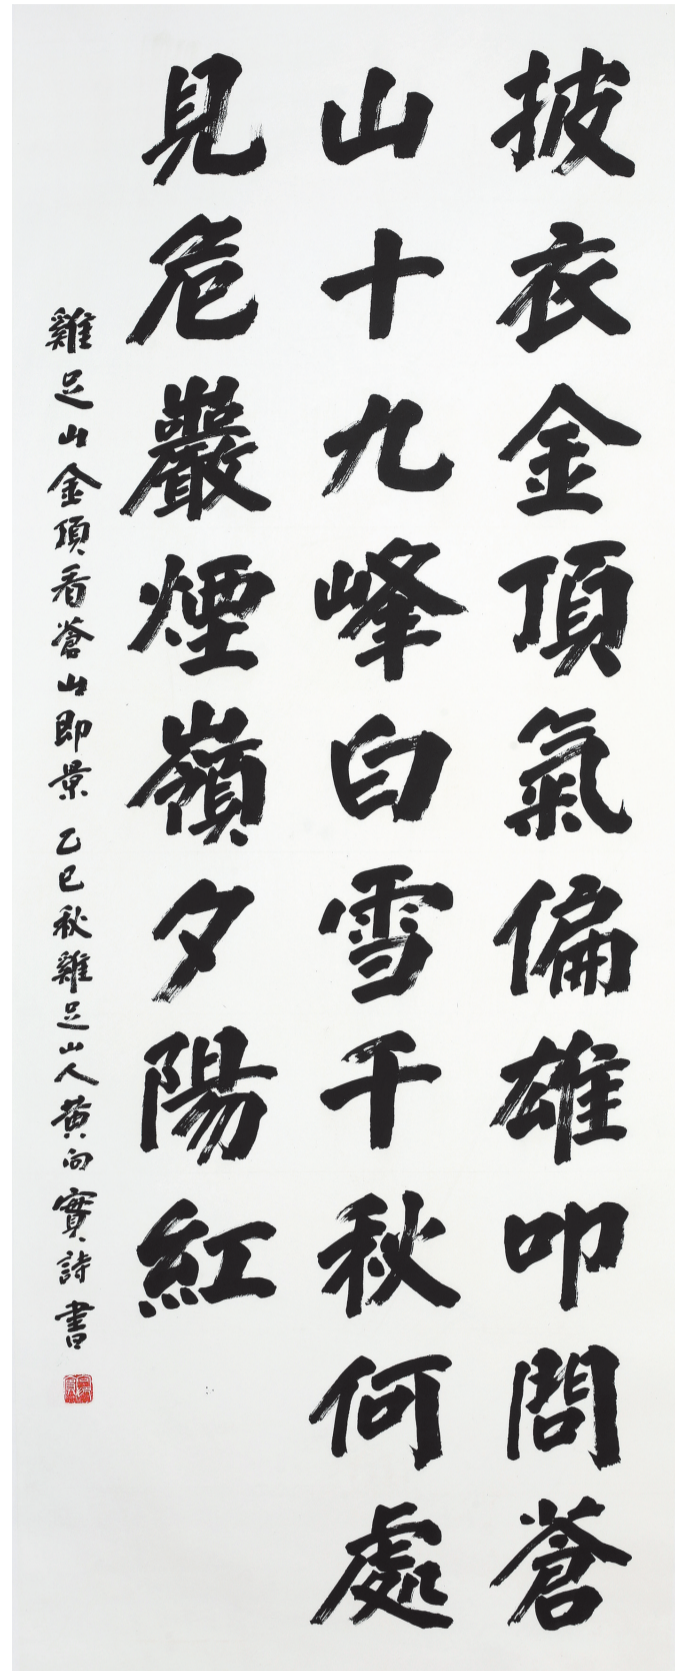 披衣金頂氣偏雄叩問蒼
山十九峰白雪千秋何處
見危巖煙嶺夕陽紅
雞足山金頂看蒼山即景 乙巳秋雞足山人黄向實詩書